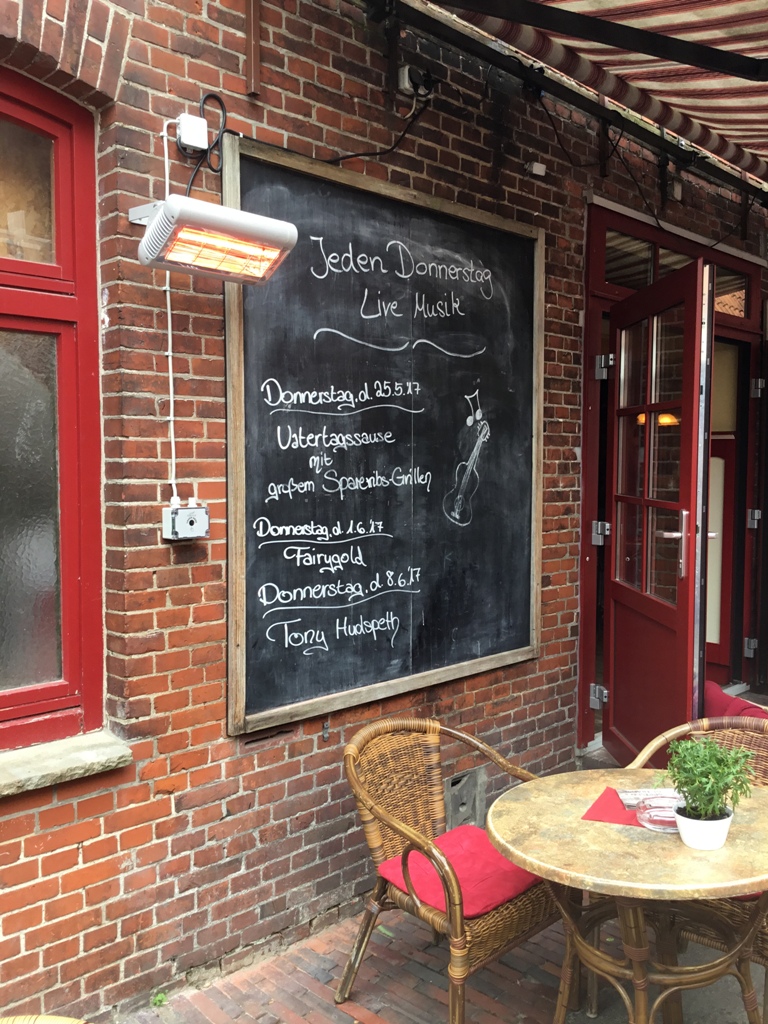 Jeden Donnerstag
Live Musik
Donnerstag, d. 25.5.'17
Vatertagssause
mit
großem Spareribs-Grillen
Donnerstag, d. 1.6.'17
Fairygold
Donnerstag, d. 8.6.'17
Tony Hudspeth